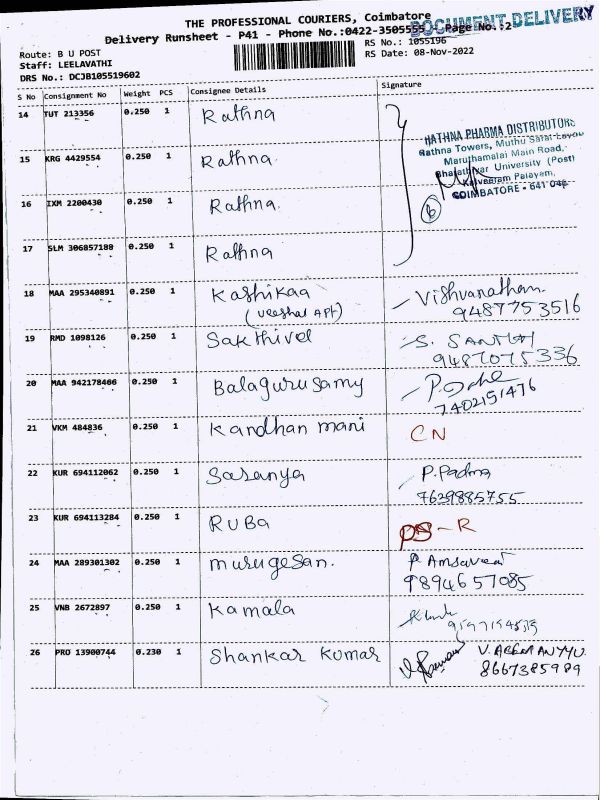 THE PROFESSIONAL COURIERS, Coimbatore
DOCUMENT DELIVERY
Delivery Runsheet - P41 - Phone No.:0422-3505555 - Page No.:2
Route: B U POST
RS No.: 1055196
Staff: LEELAVATHI
RS Date: 08-Nov-2022
DRS No.: DCJB105519602
S No Consignment No Weight PCS Consignee Details Signature
14 TUT 213356 0.250 1 Rathna
RATHNA PHARMA DISTRIBUTORS
Rathna Towers, Muthu
Maruthamalai Main Road,
15 KRG 4429554 0.250 1 Rathna
Bharathiyar University (Post)
Kalveeram Palayam,
COIMBATORE - 641 046
16 IXM 2200430 0.250 1 Rathna.
6
17 SLM 306857180 0.250 1 Rathna
18 MAA 295340891 0.250 1 Kashikaa Vishvanatham
(Veeshal Apt) 9487753516
19 RMD 1098126 0.250 1 Sakthivel S.
9487075336
20 MAA 942178466 0.250 1 Balagurusamy
7402151476
21 VKM 484836 0.250 1 Kandhan mani CN
22 KUR 694112062 0.250 1 Saranya P. Padma
7629885755
23 KUR 694113284 0.250 1 RUBA - R
24 MAA 289301302 0.250 1 murugesan. P. Amsaveni
9894657085
25 VNB 2672897 0.250 1 Kamala
26 PRO 13900744 0.230 1 Shankar Kumar
8667385989